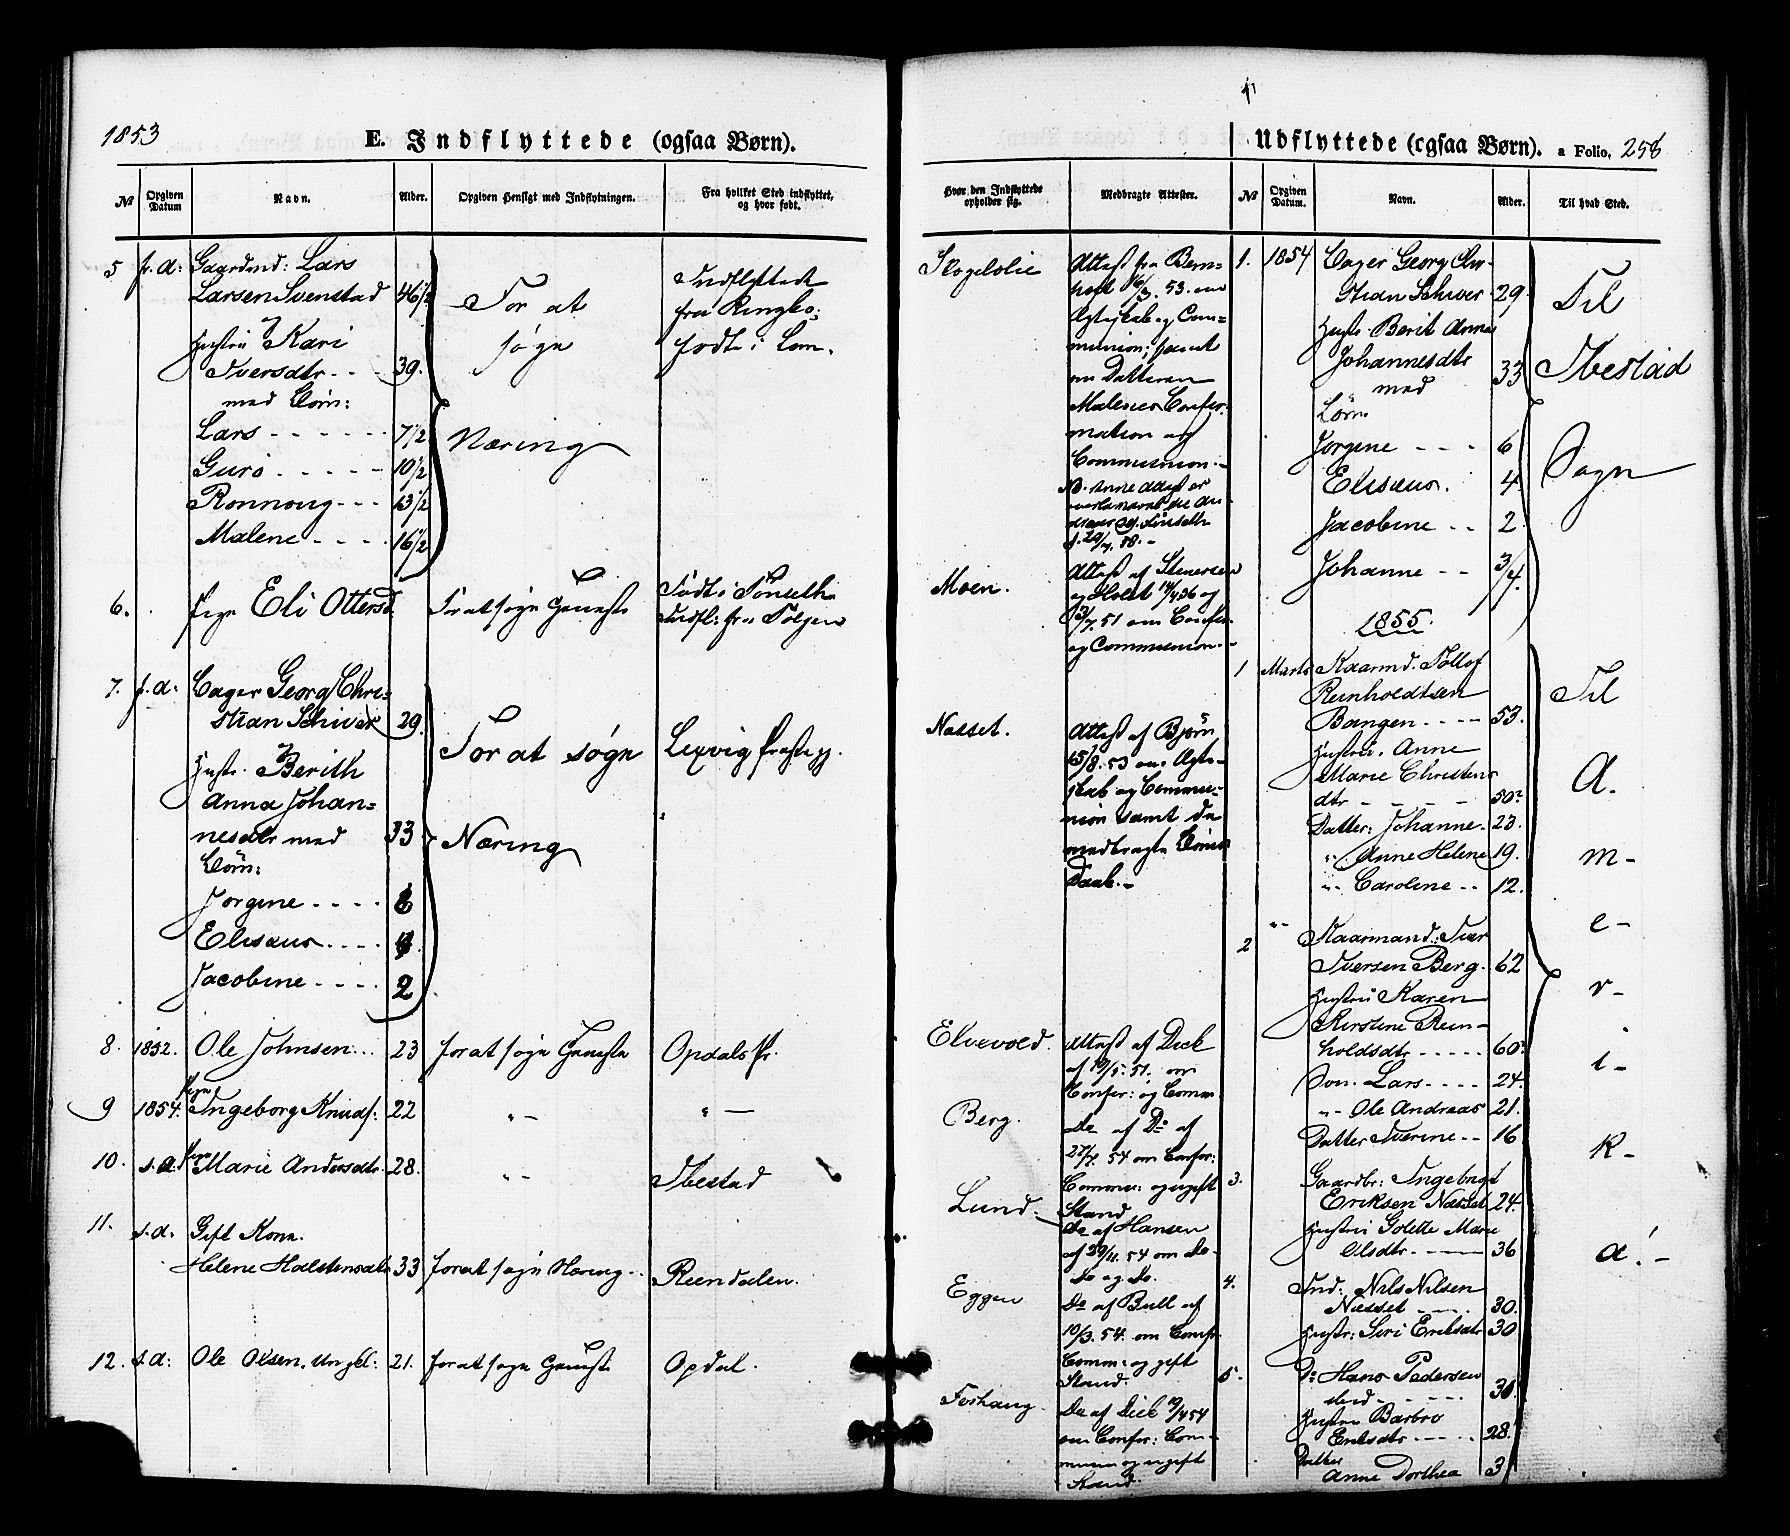 1853
E. Indflyttede (ogsaa Børn).
№ Opgiven Datum Navn. Alder. Opgiven Hensigt med Indflytningen. Fra hvilket Sted indflyttet, og hvor født.
5 f. d: Gaardmd: Lars
Larsen Svenstad 46 1/2
Hustru Kari
Iversdtr. - - 39.
med Børn:
Lars - - - - - - 7 1/2
Guro - - - - - 10 1/2
Ronnoug - - - 13 1/2
Malene - - - - 16 1/2
For at
søge
Næring
Indflyttet
fra Ringebo:
født i Lom.
6. Pige Eli Ottersd. For at søge Tjeneste Født i Tønseth
Indfl: fra Tolgen
7. f. d: Bager Georg Chri-
stian Schiver 29.
Hustr. Berith
Anna Johan=
nesdtr med 33
Børn:
Jorgine - - - - 6
Eliseus - - - - 4.
Jacobine - - - - 2
For at søge
Næring
Lexvig Præstegj.
8. 1852. Ole Johnsen... 23 for at søge Tjeneste Opdals Pr.
9 1854. Pige Ingeborg Knuds: 22 " - " -
10. s. d. Pige Marie Andersdtr. 28. " - Ibestad
11. s. d. Gift Kone
Helene Halstensdtr 33 for at søge Næring - Reendalen.
12. s. d: Ole Olsen, Ungkl: 21. for at søge Tjeneste Opdal.
Udflyttede (ogsaa Børn). a Folio. 258
Hvor den Indflyttede opholder sig. Medbragte Attester. № Opgiven Datum. Navn. Alder. Til hvad Sted.
Skogelolie
Attest fra Bern=
hoft 16/3. 53. om
Ægteskab og Com=
munion; samt
om Datteren
Malenes Confir-
mation og
Communion. -
NB. Anne Attest er
Moen.
Attest af Stenersen
og Holst 14/4 36 og
3/7. 51 om Confir.
og Communion. -
Næsset.
Attest af Bjørn
15/8. 53 om Ægte-
skab og Commu-
nion samt de
medbragte Børns
Daab. -
Elvevold.
Attest af Dick
af 19/5. 51. om
Confir: og Comm.
Berg.
Do af Do af
27/4. 54 om Confir:
Commu: og ugift
Stand
Lund.
Do af Hansen
af 29/11. 54 om Do-
Do og Do.
Eggen
Do af Bull af
10/3. 54. om Confir.
Comm: og gift
Stand.
Forhaug.
Do af Dick 19/4 54
om Confir: Com-
munion og ugift
Stand
1. 1854 Bager Georg Chr-
stian Schiver 29.
Hustr. Berit Anne
Johannesdtr 33
med
Børn
Jorgine - - - 6
Eliseus. 4.
Jacobine - - 2
Johanne - - 3/4.
Til
Ibestad
Sogn
1855.
1 Marts Kaarmd. Tollof
Reinholdtsen
Bangen - - - - 53.
Hustru. Anne
Marie Christens
dtr - - - - 50.
Datter: Johanne. 23.
" Anne Helene 19.
" - Caroline - - 12.
2 " - Kaarmand: Iver
Iversen Berg. 62
Hustru Karen
Kirstine Rein-
holdsdtr - - - - - 60.
Søn. Lars - - - - 24.
" - Ole Andreas 21.
Datter Iverine - - 16
3. Gaardbr: Ingebrigt
Eriksen Næsset 24.
Hustru Golette Marie
Olsdtr. - 36
4. Ind: Nils Nilsen
Næsset - - - - 30.
Hustr: Siri Eriksdtr 30
5. Do Hans Pedersen
- - - - - 31.
Hustru Barbro
Eriksdtr. - - - - 28.
Datter
Anne Dorthea 3
Til
A.
m-
e-
r-
i-
k-
a! -